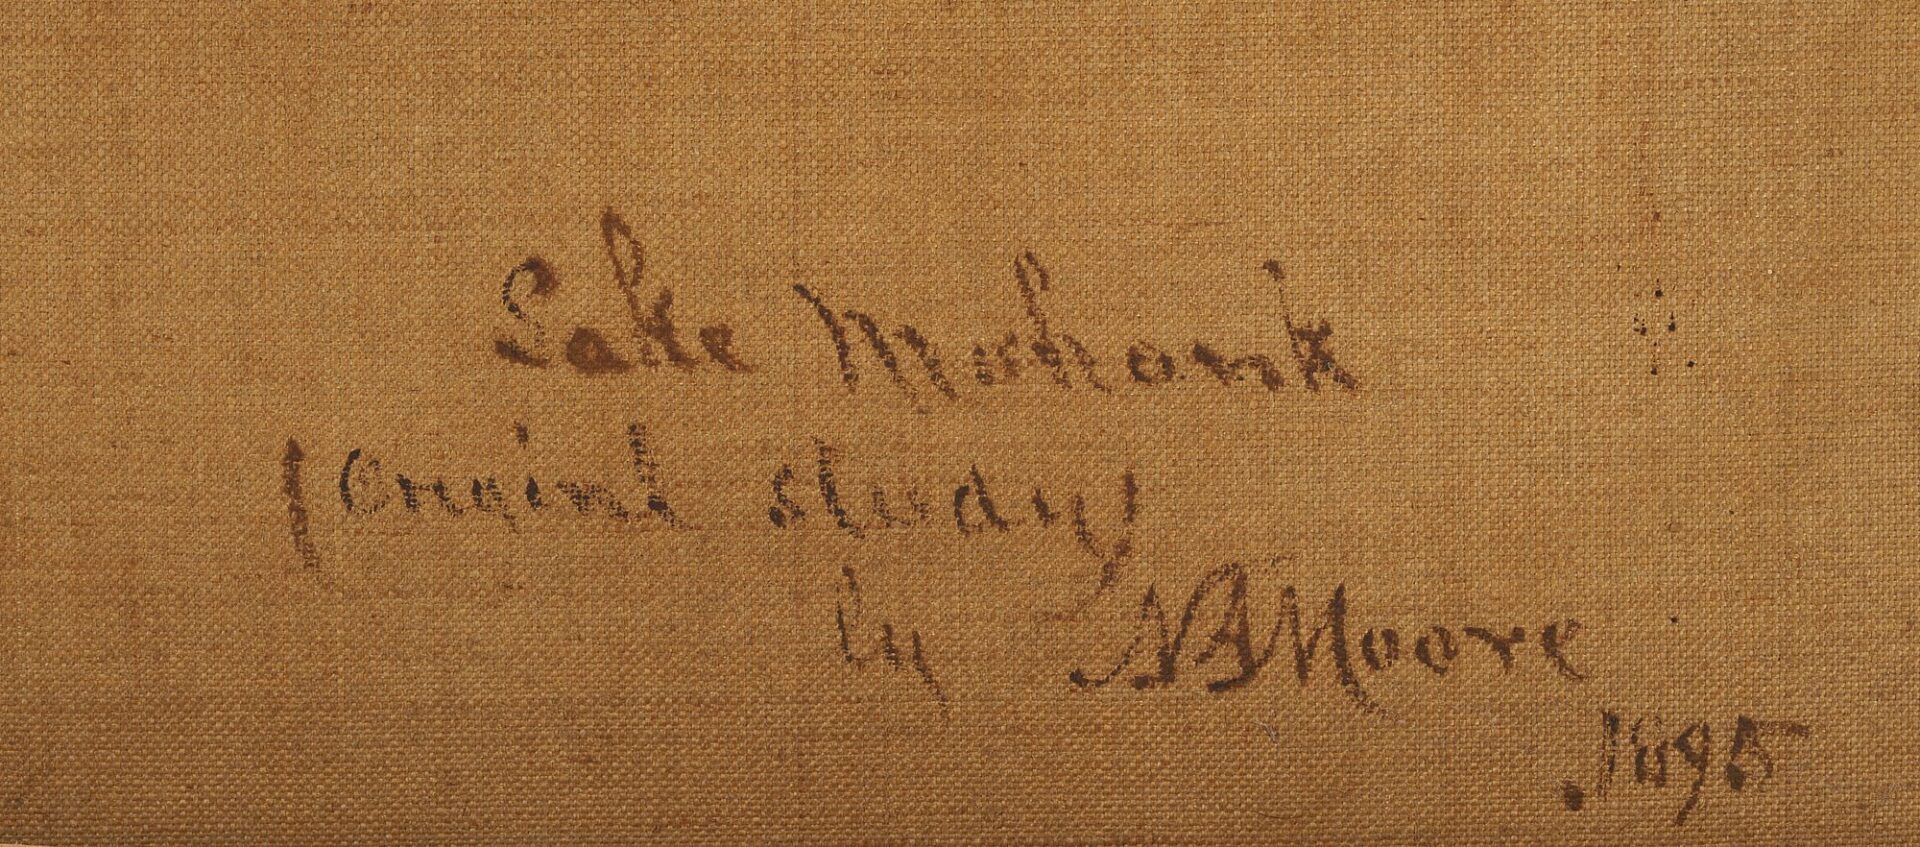 Lake Mohonk
(Originl study)
by N A Moore
1895